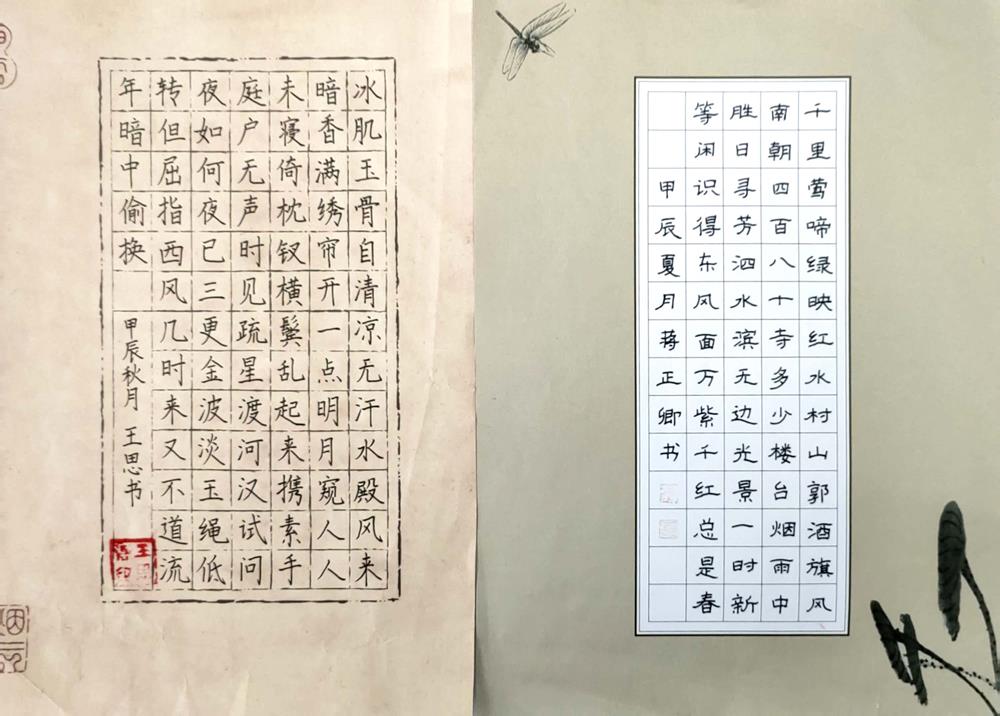 冰肌玉骨自清凉无汗水殿风来
暗香满绣帘开一点明月窥人人
未寝倚枕钗横鬓乱起来携素手
庭户无声时见疏星渡河汉试问
夜如何夜已三更金波淡玉绳低
转但屈指西风几时来又不道流
年暗中偷换
甲辰秋月 王思书
千里莺啼绿映红水村山郭酒旗风
南朝四百八十寺多少楼台烟雨中
胜日寻芳泗水滨无边光景一时新
等闲识得东风面万紫千红总是春
甲辰夏月蒋正卿书